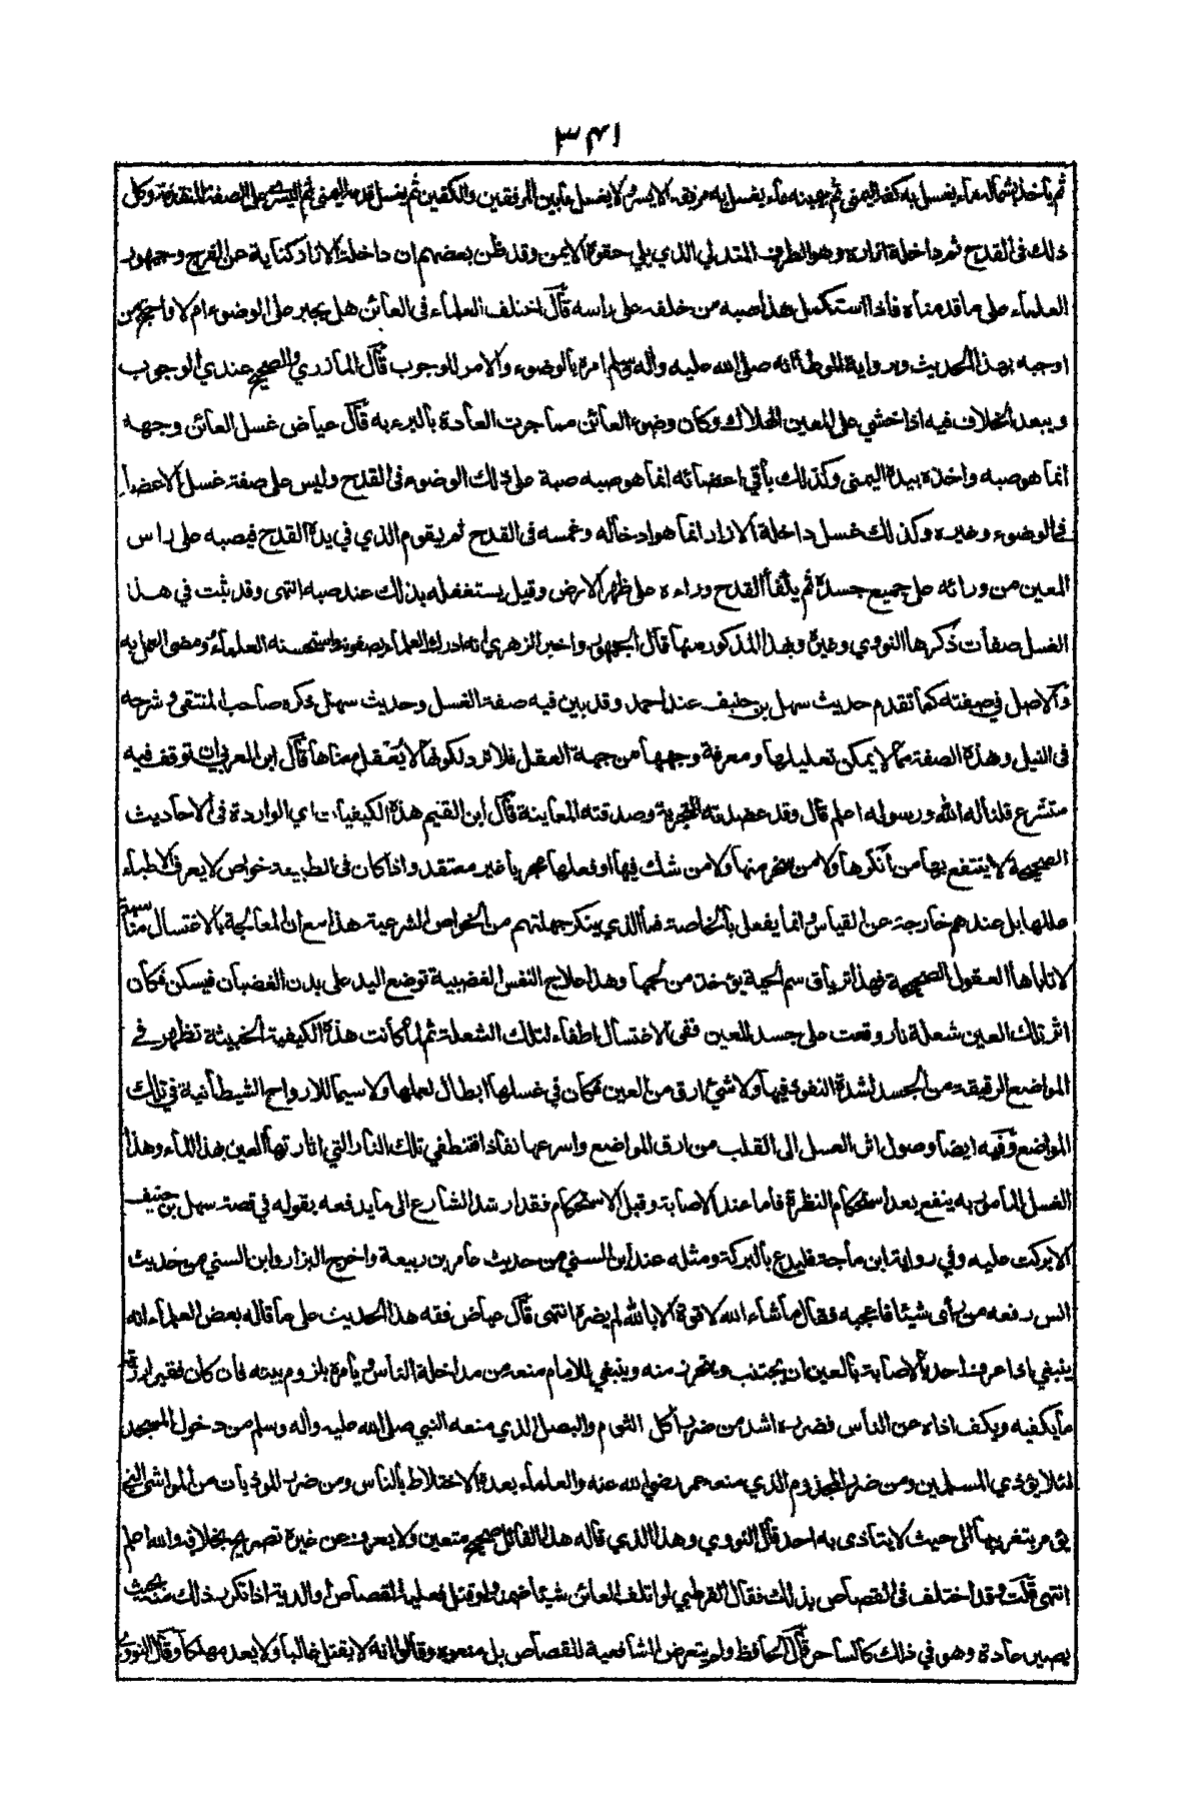 ٣٤١
ثم يأخذ بشماله ماء يغسل به كفه اليمنى ثم بيمينه ماء يغسل به مرفقه الايسر ولا يغسل مابين المرفقين والكفين ثم يغسل قدمه اليمنى ثم اليسرى على الصفة المتقدمة وكل
ذلك فى القدح ثم داخلة ازاره وهو الطرف المتدلي الذي يلي حقوه الايمن وقد ظن بعضهم ان داخلة الازار كناية عن الفرج وجمهور
العلماء على ما قدمناه فاذا استكمل هذا صبه من خلفه على راسه قال اختلف العلماء فى العائن هل يجبر على الوضوء ام لا واحتج من
اوجبه بهذا الحديث ورواية الموطأ انه صلى الله عليه وآله وسلم امره بالوضوء والامر للوجوب قال المازري والصحيح عندي الوجوب
ويبعد الخلاف فيه اذا خشي على المعين الهلاك وكان وضوء العائن مما جرت العادة بالبرء به قال عياض غسل العائن وجهه
انما هو صبه واخذه بيده اليمنى وكذلك باقي اعضائه انما هو صبه صبة على ذلك الوضوء فى القدح وليس على صفة غسل الاعضاء
فى الوضوء وغيره وكذلك غسل داخلة الازار انما هو ادخاله وغمسه فى القدح ثم يقوم الذي في يده القدح فيصبه على راس
المعين من ورائه على جميع جسده ثم يكفأ القدح وراءه على ظهر الارض وقيل يستغفله بذلك عند صبه انتهى وقد ثبت في هذا
الغسل صفات ذكرها النووي وغيره وبهذا المذكور منها قال الجمهور واخبر الزهري انه ادرك العلماء يصفونه واستحسنه العلماء ومضى العمل به
والاصل في صفته كما تقدم حديث سهل بن حنيف عند احمد وقد بين فيه صفة الغسل وحديث سهل ذكره صاحب المنتقى وشرحه
فى النيل وهذه الصفة مما لا يمكن تعليلها ومعرفة وجهها من جهة العقل فلا ترد لكونها لا يعقل معناها قال ابن العربي ان توقف فيه
متشرع قلنا له الله ورسوله اعلم قال وقد عضدته التجربة وصدقته المعاينة قال ابن القيم هذه الكيفيات اي الواردة فى الاحاديث
الصحيحة لا ينتفع بها من انكرها ولا من سخر منها ولا من شك فيها او فعلها مجربا غير معتقد واذا كان فى الطبيعة خواص لا يعرف الاطباء
عللها بل عندهم خارجة عن القياس وانما يفعل بالخاصة فما الذي ينكر جهلتهم من الخواص الشرعية هذا مع ان المعالجة بالاغتسال مناسبة
لا تاباها العقول الصحيحة فهذا ترياق سم الحية يؤخذ من لحمها وهذا علاج النفس الغضبية توضع اليد على بدن الغضبان فيسكن فكان
اثر تلك العين شعلة نار وقعت على جسد المعين ففى الاغتسال اطفاء لتلك الشعلة ثم لما كانت هذه الكيفية الخبيثة تظهر في
المواضع الرقيقة من الجسد لشدة النفوذ فيها ولا شئ ارق من العين فكان في غسلها ابطال لعملها ولا سيما للارواح الشيطانية في تلك
المواضع وفيه ايضا وصول اثر الغسل الى القلب من ارق المواضع واسرعها نفاذا فتنطفي تلك النار التي اثارتها العين بهذا الماء وهذا
الغسل المامور به ينفع بعد استحكام النظرة فاما عند الاصابة وقبل الاستحكام فقد ارشد الشارع الى ما يدفعه بقوله في قصة سهل بن حنيف
الا بركت عليه وفي رواية ابن ماجة فليدع بالبركة ومثله عند ابن السني من حديث عامر بن ربيعة واخرج البزار وابن السني من حديث
انس رفعه من رأى شيئا فاعجبه فقال ما شاء الله لا قوة الا بالله لم يضره انتهى قال عياض فقه هذا الحديث على ما قاله بعض العلماء انه
ينبغي اذا عرف احد بالاصابة بالعين ان يجتنب ويتحرز منه وينبغي للامام منعه من مداخلة الناس ويأمره بلزوم بيته فان كان فقيرا رزقه
ما يكفيه ويكف اذاه عن الناس فضرره اشد من ضرر أكل الثوم والبصل الذي منعه النبي صلى الله عليه وآله وسلم من دخول المسجد
لئلا يؤذي المسلمين ومن ضرر المجذوم الذي منعه عمر رضي الله عنه والعلماء بعده الاختلاط بالناس ومن ضرر الموذيات من المواشي التي
يؤمر بتغريبها الى حيث لا يتأذى به احد قال النووي وهذا الذي قاله هذا القائل صحيح متعين ولا يعرف عن غيره تصريح بخلافه والله اعلم
انتهى قلت وقد اختلف فى القصاص بذلك فقال القرطبي لو اتلف العائن شيئا ضمنه ولو قتل فعليه القصاص او الدية اذا تكرر ذلك منه بحيث
يصير عادة وهو في ذلك كالساحر قال الحافظ ولم يتعرض الشافعية للقصاص بل منعوه وقالوا انه لا يقتل غالبا ولا يعد مهلكا وقال النووي